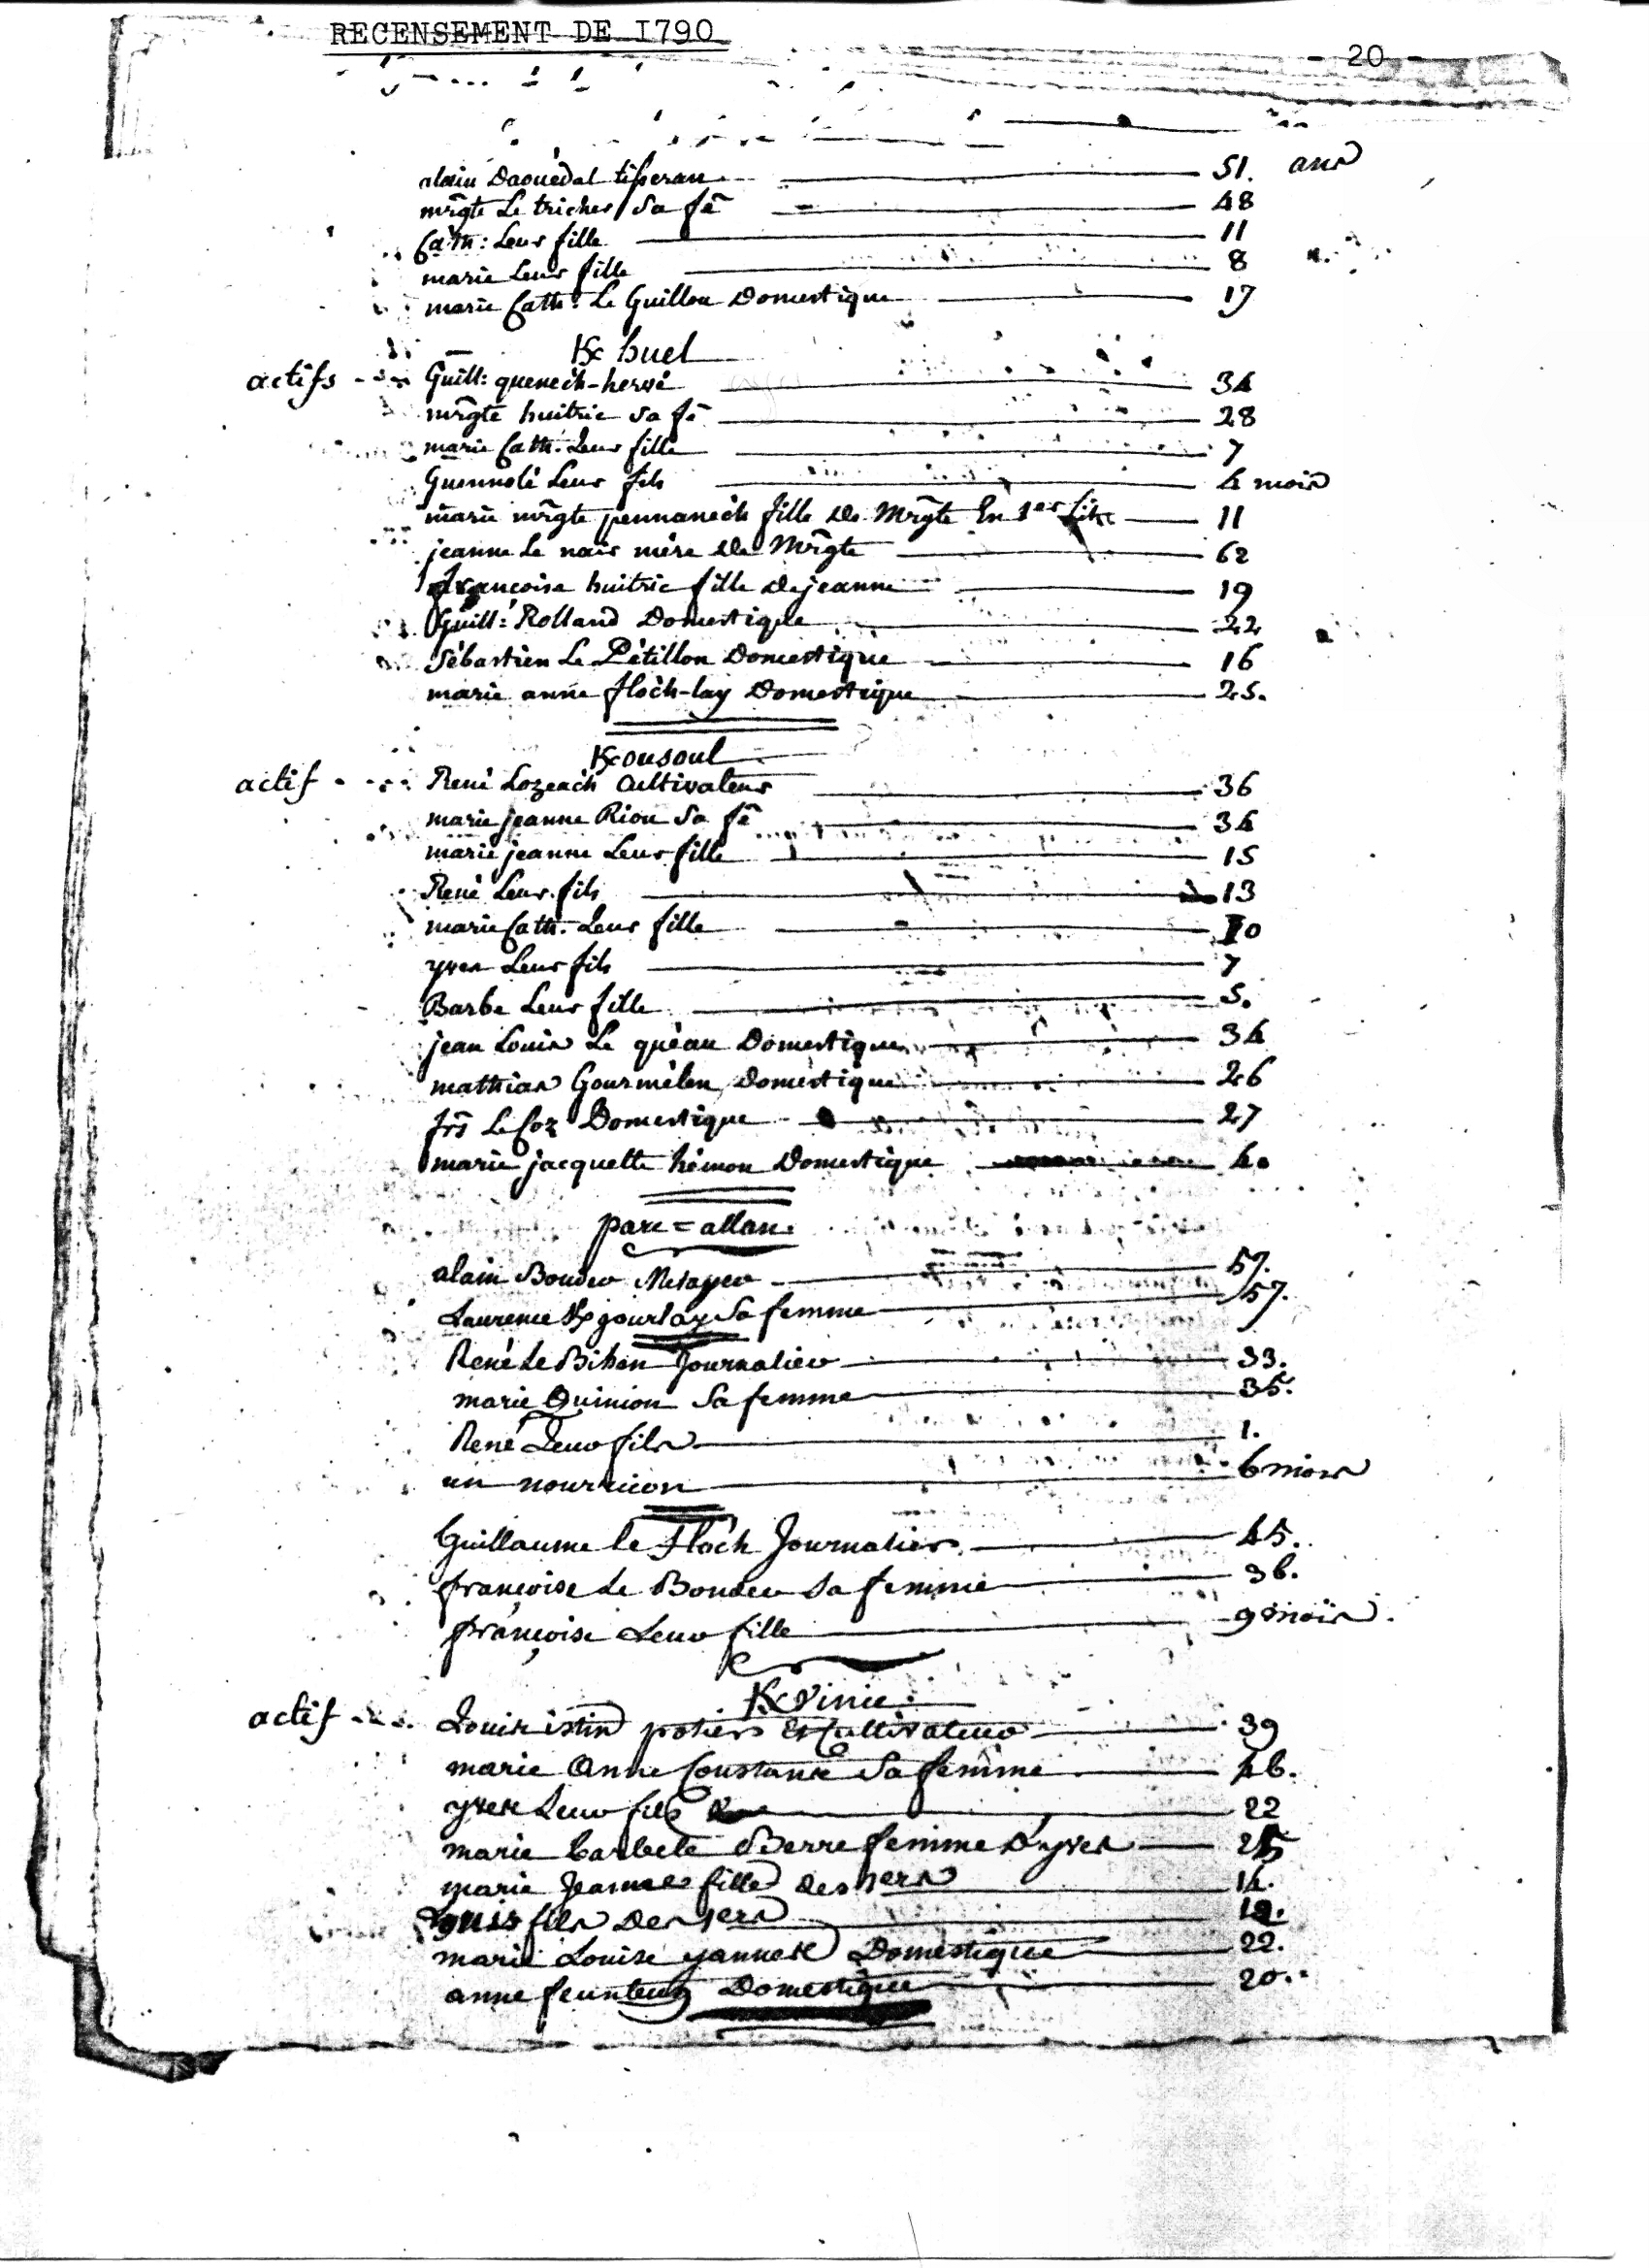 RECENSEMENT DE I790
- 20 -
alain Daouëdal tisseran 51. ans
mrgte Le tricher sa fe 48
Cath: Leur fille 11
marie Leur fille 8
marie Cath: Le Guillou Domestique 17
K huel
actifs Guill: quenec'h-hervé 34
mrgte huitric sa fe 28
marie Cath: Leur fille 7
Guennolé Leur fils 4 mois
marie mrgte pennanec'h fille de Mrgte En 1er Lit 11
jeanne Le naïr mère de Mrgte 62
françoise huitric fille de jeanne 19
Guill: Rolland Domestique 22
Sébastien Le Pétillon Domestique 16
marie anne floc'h-lay Domestique 25.
K ousoul
actif René Lozeac'h Cultivateur 36
marie jeanne Riou sa fe 34
marie jeanne Leur fille 15
René Leur fils 13
marie Cath: Leur fille 10
yves Leur fils 7
Barbe Leur fille 5.
jean Louis Le quéau Domestique 34
mathias Gourmélen Domestique 26
frs Le Coz Domestique 27
marie jacquette hémon Domestique 40
parc = allan
alain Bouder Metayer 57.
Laurence K gourlay Sa femme 57.
René Le Bihan Journalier 33.
marie Quinion Sa femme 35.
René Leur fils 1.
un nourricon 6 mois
Guillaume le Floc'h Journalier 45.
françoise Le Bouder sa femme 36.
françoise Leur fille 9 mois
K vinic
actif Louis istin potier Et Cultivateur 39
marie Anne Constance Sa femme 46.
yves Leur fils 22
marie barbe le Berre femme d'yves 25
marie Jeanne fille des 1ers 14.
Louis fils des 1ers 12.
marie Louise yannic Domestique 22.
anne feunteun Domestique 20.